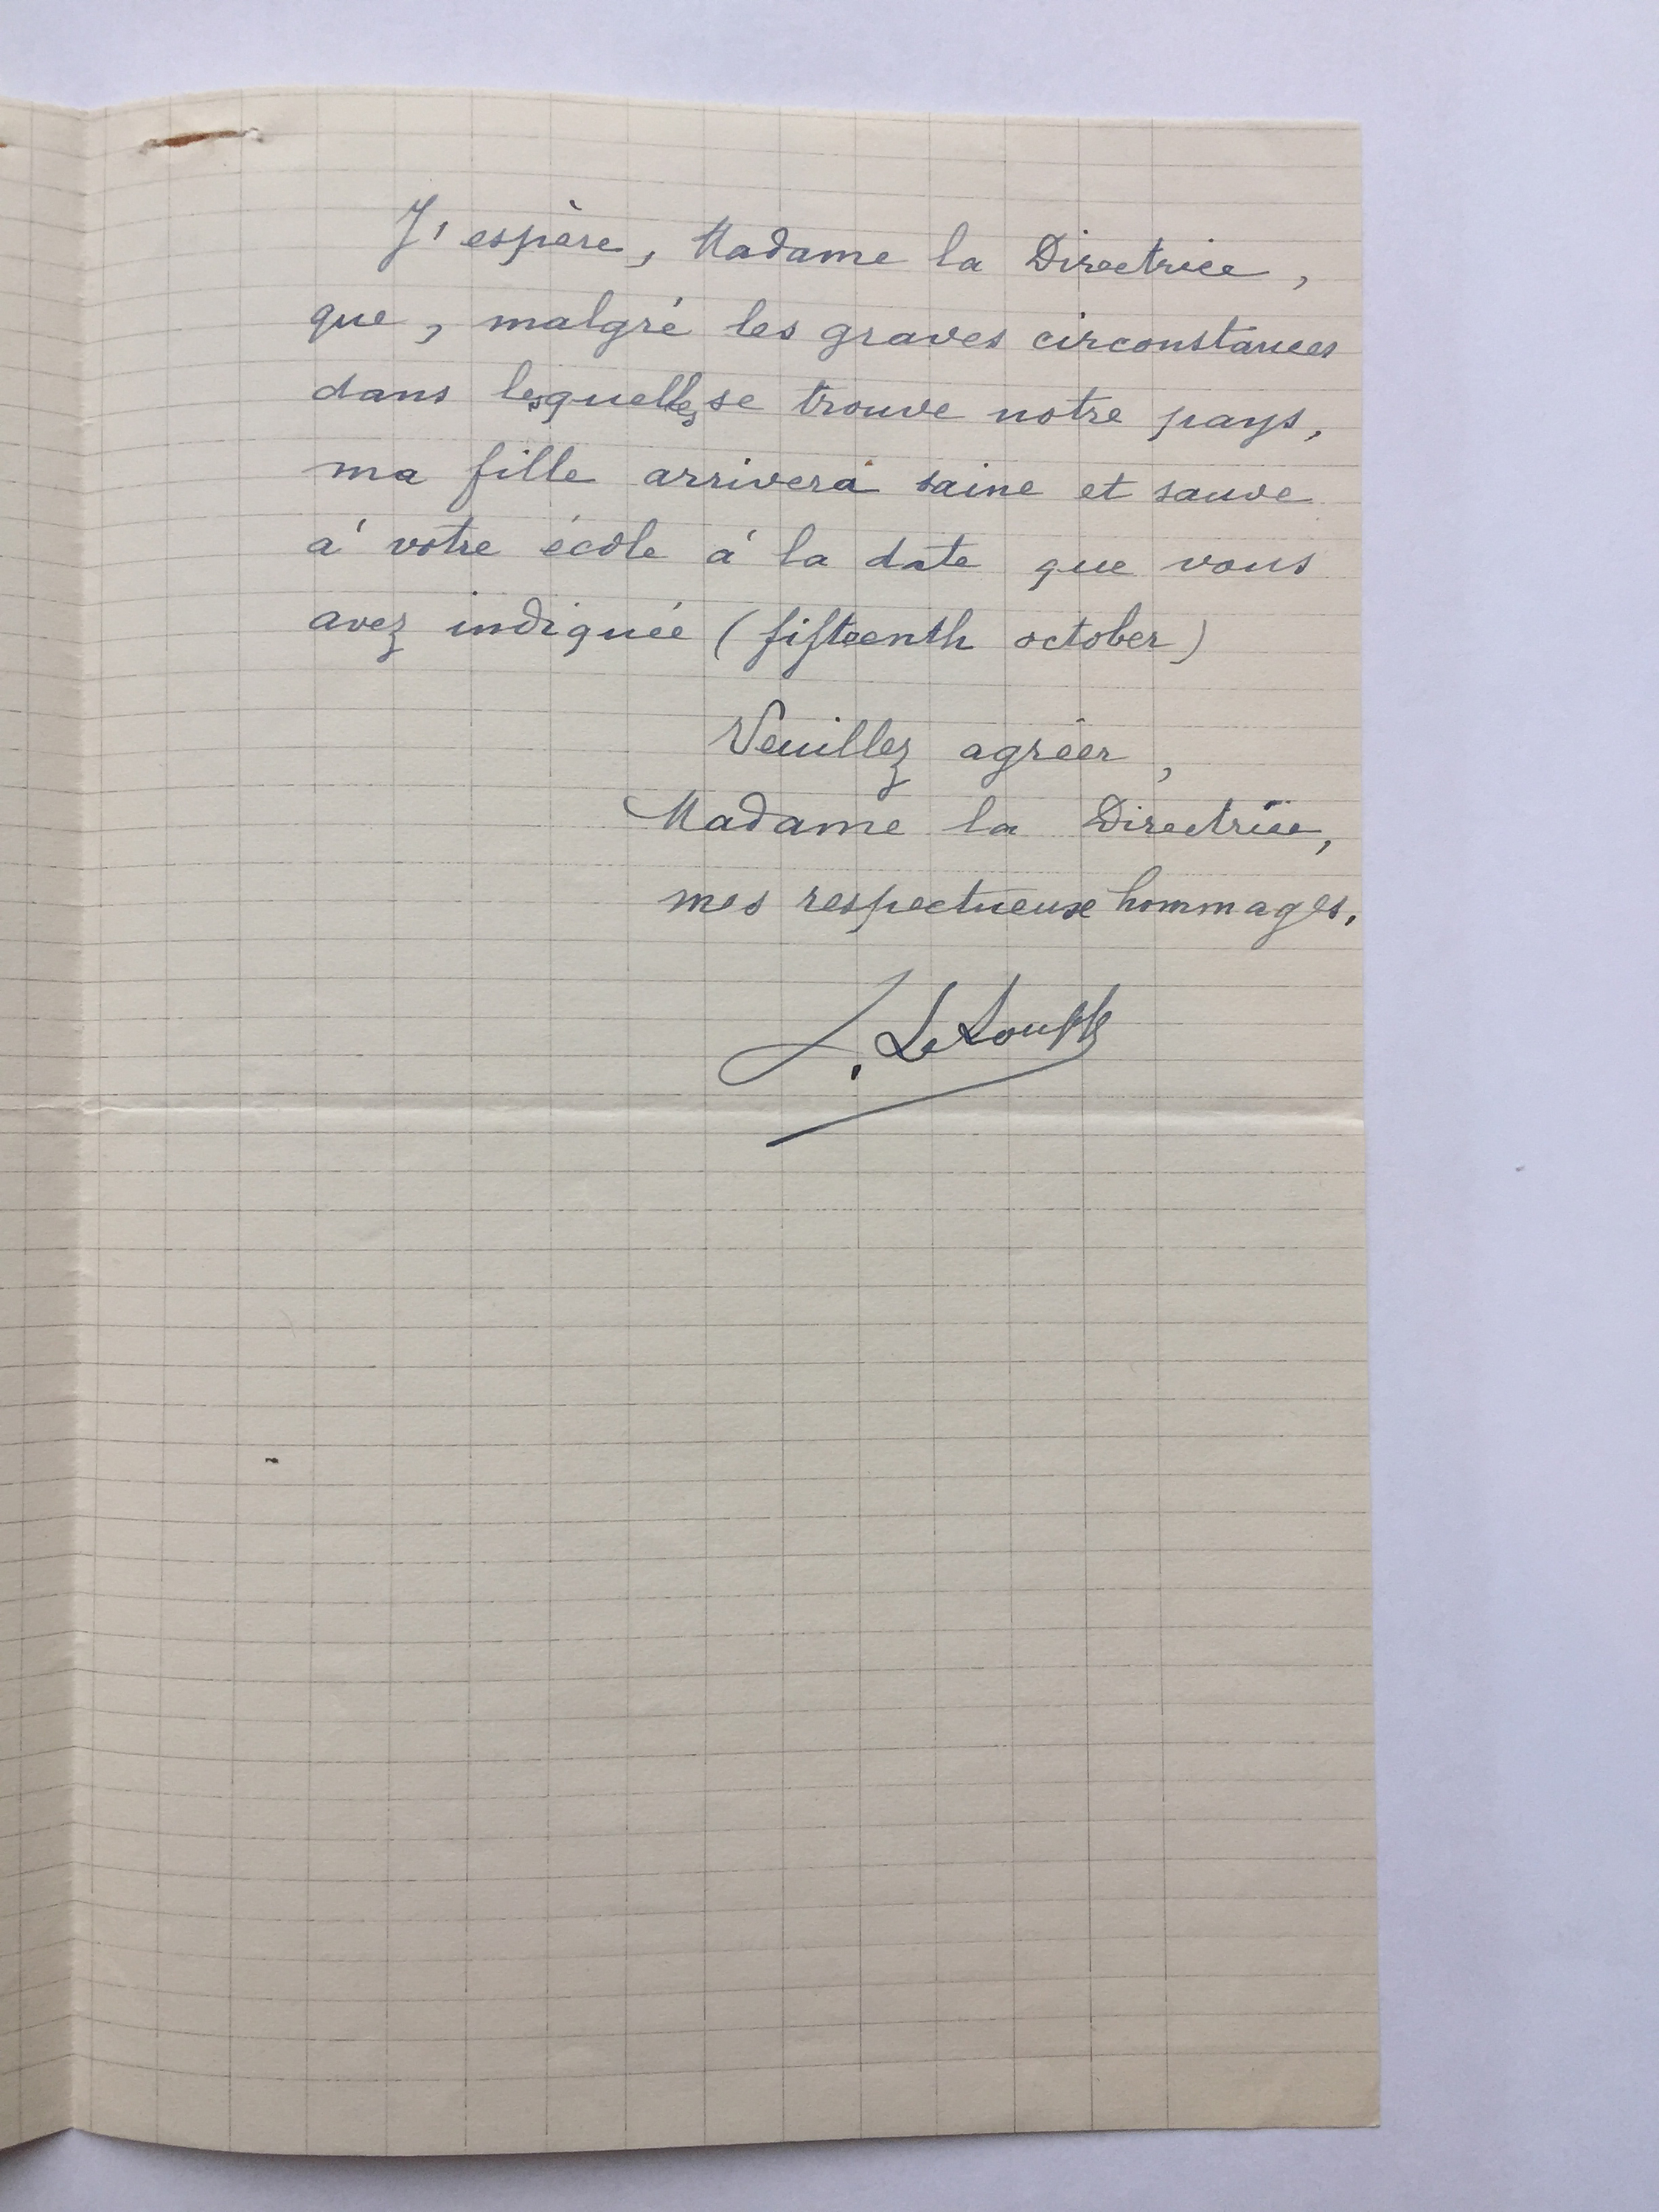 J'espère, Madame la Directrice,
que, malgré les graves circonstances
dans lesquelles se trouve notre pays,
ma fille arrivera saine et sauve
à votre école à la date que vous
avez indiquée (fifteenth october)
Veuillez agréer,
Madame la Directrice,
mes respectueux hommages.